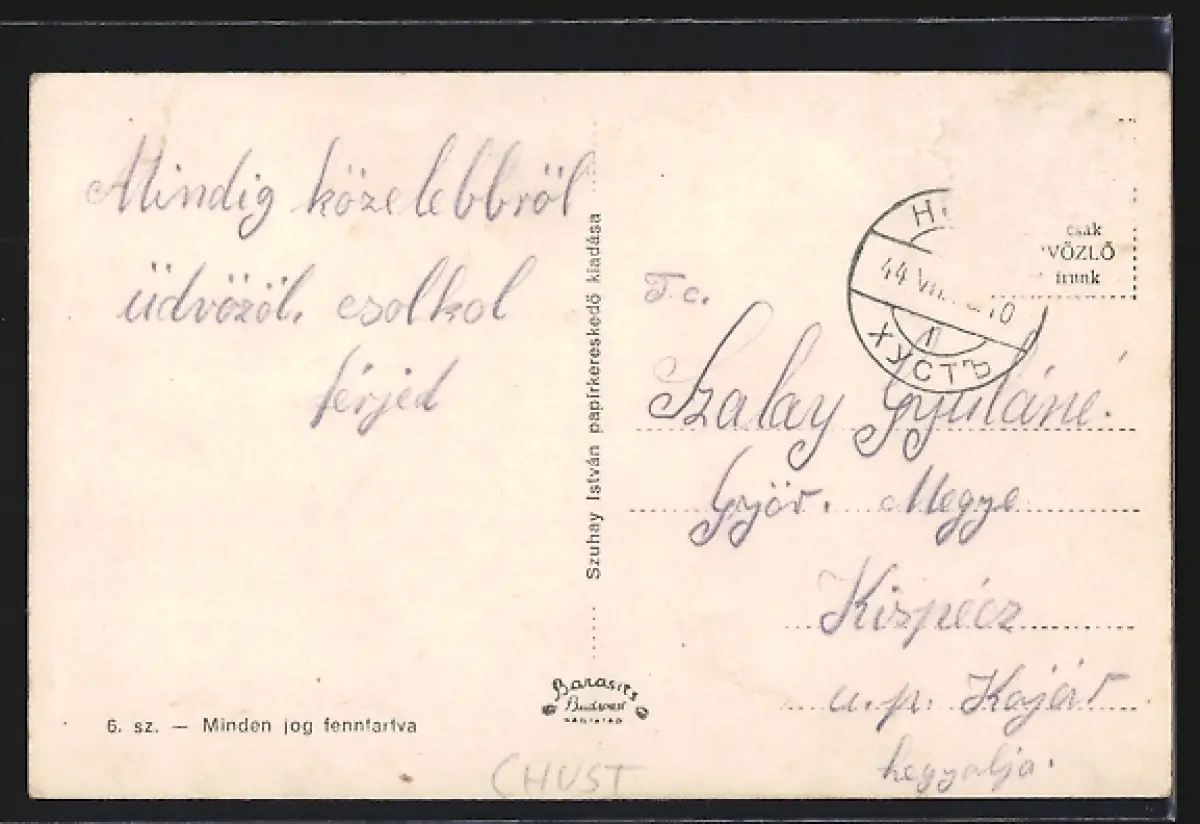 Mindig közelebbről
üdvözöl, csolkol
férjed
6. sz. — Minden jog fenntartva
Szuhay István papírkereskedő kiadása
Barasits
Budapest
csak
VÖZLŐ
írunk
44 VIII. 10
ХУСТЪ
T c.
Szalay Gyuláné.
Győr. Megye
Kispécz
u. p. Kajár
hegyalja.
CHUST